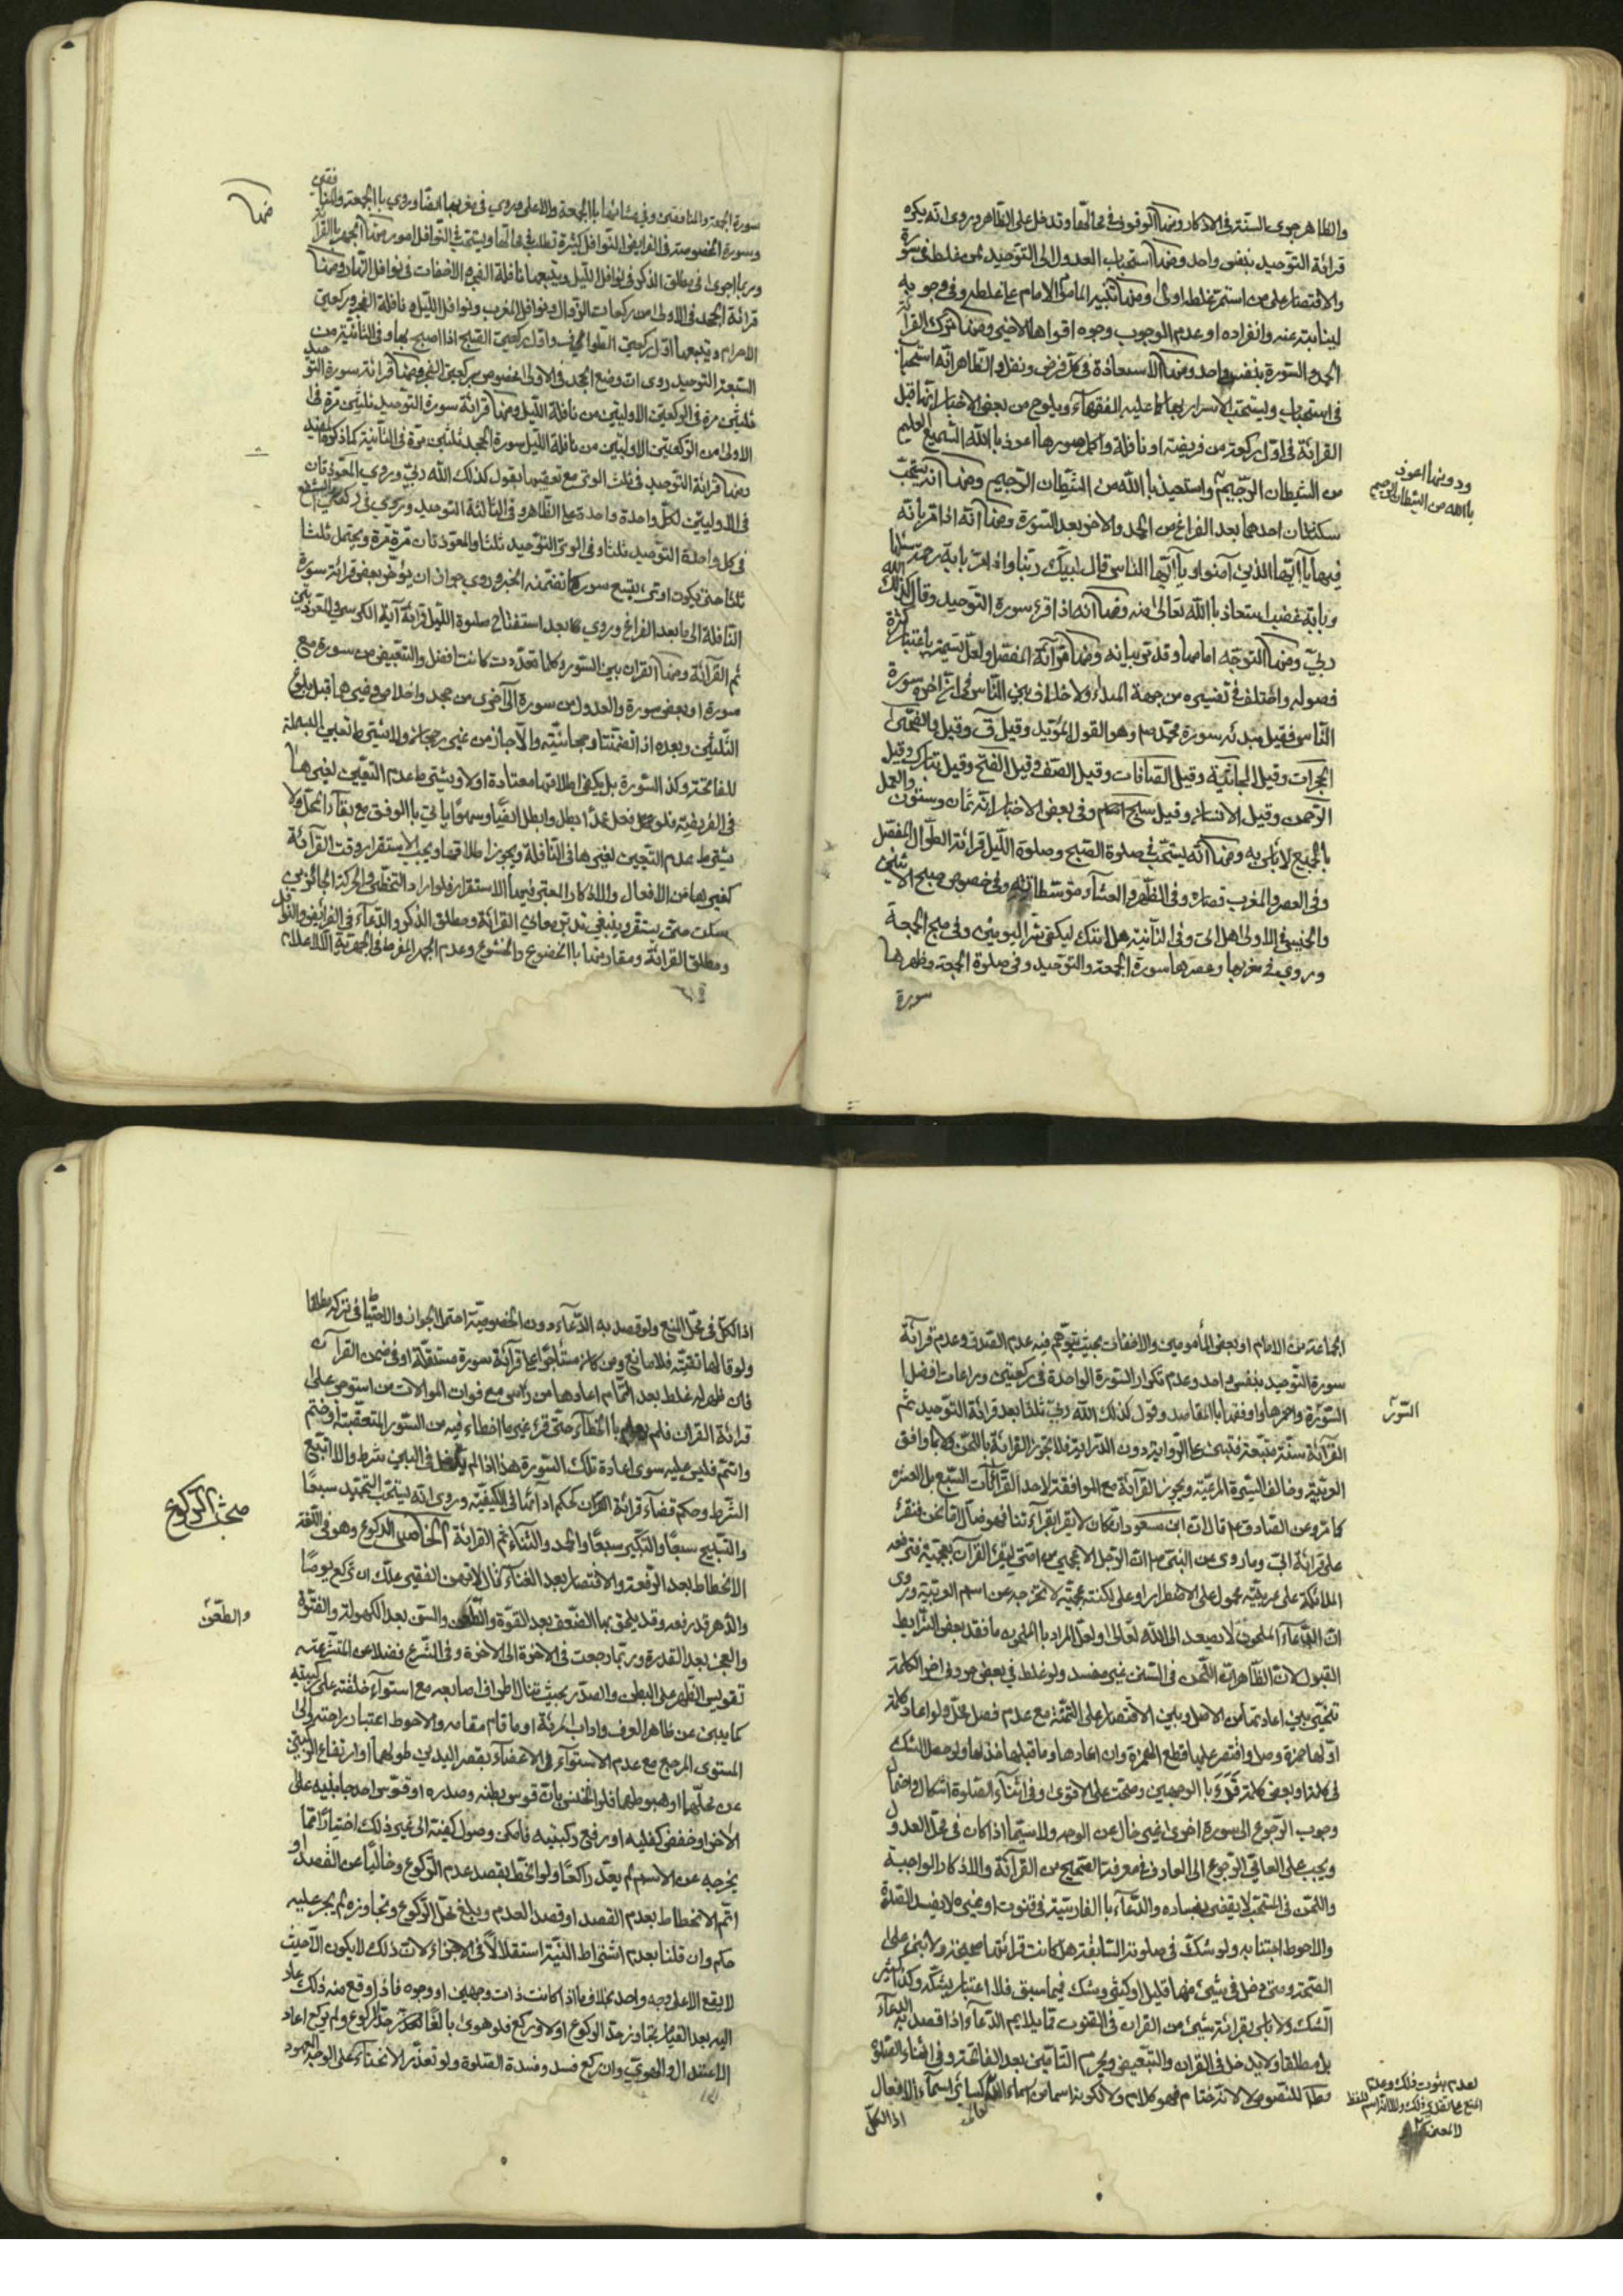 والظاهر جوى السنة في الاذكار ومنها الوقوف في محالها وتدخل على الظاهر وروى انه يكره
قرائة التوحيد بنفس واحد ومنها استحباب العدول الى التوحيد لمن غلط في سورة
والاقتصار على من استمر غلطه اولى ومنها تنبيه المأموم الامام على غلطه وفي وجوبه
لينابته عنه وانفراده او عدم الوجوب وجوه اقواها الاخير ومنها ترك القرآن
الحمد والسورة بنفس واحد ومنها الاستعاذة في كل فرض ونفل والظاهر انه استحباب
في استحباب ويستحب الاسرار بها كما عليه الفقهاء ويلوح من بعض الاخبار انها قبل
القرائة في اول ركعة من فريضة او نافلة واكمل صورها اعوذ بالله السميع العليم
من الشيطان الرجيم واستعيذ بالله من الشيطان الرجيم ومنها انه يستحب
ودونها اعوذ
بالله من الشيطان الرجيم
سكتتان احدهما بعد الفراغ من الحمد والاخر بعد السورة ومنها انه اذا قرء آية
فيها يا ايها الذين آمنوا ويا ايها الناس قال لبيك ربنا واذا مر باية رحمة سئلها
وباية غضب استعاذ بالله تعالى منه ومنها انه اذا قرء سورة التوحيد وقال كذلك الله
ربي ومنها التوجه امامها وقد تو بيانه ومنها قرآئة المفصل ولعل تسميته باعتبار كثرة
فصوله واختلف في تفسيره من جهة المبداء ولا خلاف بين الناس في ان اخره سورة
الناس فقيل مبدئه سورة محمد ص وهو القول المؤيد وقيل ق وقيل والضحى
الحجرات وقيل الجاثية وقيل الصافات وقيل الصف وقيل الفتح وقيل تبارك وقيل
الرحمن وقيل الانسان وقيل سبح اسم وفي بعض الاخبار انه ثمان وستون والعمل
بالجميع لا بأس به ومنها انه يستحب في صلوة الصبح وصلوة الليل قرائة الطوال المفصل
وفي العصر والمغرب قصاره وفي الظهر والعشاء متوسطاته وفي خصوص صبح الاثنين
والخميس في الاولى هل اتى وفي الثانية هل اتيك ليكفى شر اليومين وفي صبح الجمعة
وروي في مغربها وعصرها سورة الجمعة والتوحيد وفي صلوة الجمعة وظهرها
سورة
سورة الجمعة والمنافقين وفي عشائها بالجمعة والاعلى وروي في مغربها ايضا وروي بالجمعة والمنافقين
وسورة الخصوصة في الفرايض والنوافل كثيرة تطلب في محالها ويستحب في النوافل امور منها الجهر بالقرائة
وربما اجرى في مطلق الذكر في نوافل الليل ويتبعها نافلة الفجر والاخفات في نوافل النهار ومنها
منها
قرائة الجحد في الاولى من ركعات الزوال ونوافل المغرب ونوافل الليل ونافلة الفجر وركعتي
الاحرام ويتبعها اول ركعتي الطواف واول ركعتي الصبح اذا اصبح بها وفي الثانية من
السبعة التوحيد روى ان وضع الجحد في الاولى لخصوص ركعتي الفجر ومنها قرائة سورة التوحيد
ثلثين مرة في الركعتين الاوليتين من نافلة الليل ومنها قرائة سورة التوحيد ثلثين مرة في
الاولى من الركعتين الاوليتين من نافلة الليل سورة الجحد ثلثين مرة في الثانية كما ذكره المفيد
ومنها قرائة التوحيد في ثلث الوتر مع تعقيبها بقول كذلك الله ربي وروي المعوذتان
في الاوليتين لكل واحدة واحدة على الظاهر وفي الثالثة التوحيد وروي في ركعتي الشفع
في كل واحدة التوحيد ثلثا وفي الوتر التوحيد ثلثا والمعوذتان مرة مرة ويحتمل ثلثا
ثلثا حتى يكون اوتى بتسع سور كما تضمنه الخبر وروي جواز ان يؤخر بعض قرائة سورة
النافلة الى ما بعد الفراغ وروي كما بعد استفتاح صلوة الليل قرائة آية الكرسي والمعوذتين
ثم القرائة ومنها القران بين السور وكلما تعددت كانت افضل والتبعيض من سورة مع
سورة او بعض سورة والعدول من سورة الى اخرى من جحد واخلاص وغيرهما قبل بلوغ
الثلثين وبعده اذا تضمنتا ومجانسته والا جاز من غير رجحان ولا يشترط تعيين البسملة
للفاتحة وكذا السورة بل يكفي اطلاقها معتادة اولا ويشترط عدم التعيين لغيرها
في الفريضة فلو فعل عمدًا بطل وابطل ايضًا وسهوًا ياتي بالوفق مع بقاء المحل ولا
يشترط عدم التعيين لغيرها في النافلة ويجوز اطلاقها ويجب الاستقرار وقت القرآئة
كغيرها من الافعال والاذكار المعتبر فيها الاستقرار فلو اراد التخطي والحركة الجائزين
سكت حتى يستقر وينبغي تدبر معاني القرائة ومطلق الذكر والدعآء في الفرايض والنوافل
ومطلق القرائة ومقارنتها بالخضوع والخشوع وعدم الجهر المفرط في الجهرية الا لاعلام
الجماعة من الامام او بعض المأمومين والاخفات بحيث يتوهم فيه عدم الصدق وعدم قرائة
سورة التوحيد بنفس واحد وعدم تكرار السورة الواحدة في ركعتين ومراعات افضل
السورة واحمزها واوفقها بالمقاصد وقول كذلك الله ربي ثلثا بعد قرائة التوحيد ثم
السور
القرآئة سنة متبعة فتبنى على الرواية دون الدراية فلا تجوز القرائة باللحن ولا بما وافق
العربية وخالف السيرة المرعية ويجوز القرآئة مع الموافقة لاحد القرآئات السبع بل العشر
كما مر وعن الصادق ع قال ان ابن مسعود ان كان لا يقرا بقرآئتنا فهو ضال اما نحن فنقرء
على قرائة ابي وما روى عن النبي ص ان الرجل الاعجمي من امتي ليقرء القرآن بعجمية فترفعه
الملائكة على عربية محمول على الاضطرار او على لكنته عجمية لا تخرجه عن اسم العربية وروى
ان الدعآء الملحون لا يصعد الى الله تعالى ولعل المراد بالملحون ما فقد بعض الشرايط
القبول لان الظاهر ان اللحن في السنن غير مفسد ولو غلط في بعض حروف اخر الكلمة
تخير بين اعادتها من الاصل وبين الاقتصار على التتمة مع عدم فصل مخل ولو اعاد كلمة
اولها همزة وصل واقتصر عليها قطع الهمزة وان اعادها وما قبلها حذفها ولو حصل الشك
في كلمة او بعض كلمة قرء بالوجهين وصحت على الاقوى وفي اثناء الصلوة اشكال واحتمال
وجوب الرجوع الى سورة اخرى غير خال عن الوجه ولا سيما اذا كان في محل العدول
ويجب على العامي الرجوع الى العارف في معرفة الصحيح من القرآئة والاذكار الواجبة
واللحن في المستحب لا يقضى بفساده والدعآء بالفارسية في قنوت او غيره لا يفسد الصلوة
والاحوط اجتنابه ولو شك في صلوته السابقة هل كانت قرائتها صحيحة ولا بنى على
الصحة ومتى دخل في شيء منها قليل او كثير وشك فيما سبق فلا اعتبار بشكه وكذا كثير
الشك ولا باس بقرائة شيء من القران في القنوت مما يلايم الدعآء اذا قصد به الدعآء
بل مطلقا ولا يدخل في القران والتبعيض ويحرم التامين بعد الفاتحة وفي اثناء الصلوة
مطلقا للنصوص لا لانه ختام فهو كلام ولا لكونه اسما من اسماء الله كسائر اسمآء الافعال
تعالى
لعدم ثبوت ذلك وعدم
المنع على تقدير ذلك ولا لانه اسم للفظ
لا لمعنى
اذ الكل
اذ الكل في محل المنع ولو قصد به الدعآء دون الخصوصية احتمل الجواز والاحتياط في تركه مطلقا
ولو قالها تقية فلا مانع ومن كان مستأجرا على قرائة سورة مستقلة او في ضمن القرآن
فان ظهر له غلط بعد التمام اعادها من راس مع فوات الموالات من استوجر على
قرائة القران فلم يعلم بالخطاء حتى قرء غير ما اخطاء فيه من السور المتعقبة او ختم
واتتم فليس عليه سوى اعادة تلك السورة هذا اذا لم يدخل في البين شرط والا اتبع
الشرط وحكم قضآء قرائة القران كحكم ادآئها في الكيفية وروى انه يستحب التحميد سبعًا
والتسبيح سبعًا والتكبير سبعًا والحمد والثناء ثم القرائة الخامس الركوع وهو في اللغة
مبحث الركوع
الانحطاط بعد الرفعة والافتقار بعد الغناء كقال لا تهين الفقير علك ان تركع يومًا
والدهر قد رفعه وقد يلحق بها الضعف بعد القوة والطعن والسن بعد الكهولة والفتوة
والطعن
والعجز بعد القدرة وربما رجعت في الاخوة الى الاخوة وفي الشرع فضلا عن المتشرعة
تقويس الظهر على البطن والصدر بحيث تنال اطراف اصابعه مع استوآء خلقته على ركبتيه
كما يبين عن ظاهر العرف واداب المرئة او ما قام مقامه والاحوط اعتبار راحته والى
المستوى المرجع مع عدم الاستوآء في الاعضآء بقصر اليدين طولهما او ارتفاع الركبتين
عن محلهما او هبوطهما فلو انخنس بان قوس بطنه وصدره او قوس احد جانبيه على
الاخر او خفض كفليه او رفع ركبتيه فامكن وصول كفيه الى غير ذلك اختيارًا مما
يخرجه عن الاسم لم يعد راكعًا ولو انحط بقصد عدم الركوع وخاليًا عن القصد او
اتم الانحطاط بعدم القصد او قصد العدم وبلغ محل الركوع وتجاوزه لم يجر عليه
حكم وان قلنا بعدم اشتراط النية استقلالًا في الاجزاء لان ذلك لا يكون الا حيث
لا يقع الا على وجه واحد بخلاف ما اذا كانت ذات وجهين او وجوه فاذا وقع منه ذلك عاد
اليه بعد القيام تجاوز حد الركوع اولا وركع فلو هوى بالغًا لحد الركوع ولم يركع اعاد
الاعتدال والهوي وان ركع فسد وفسدة الصلوة ولو تعذر الانحناء على الوجه المعهود